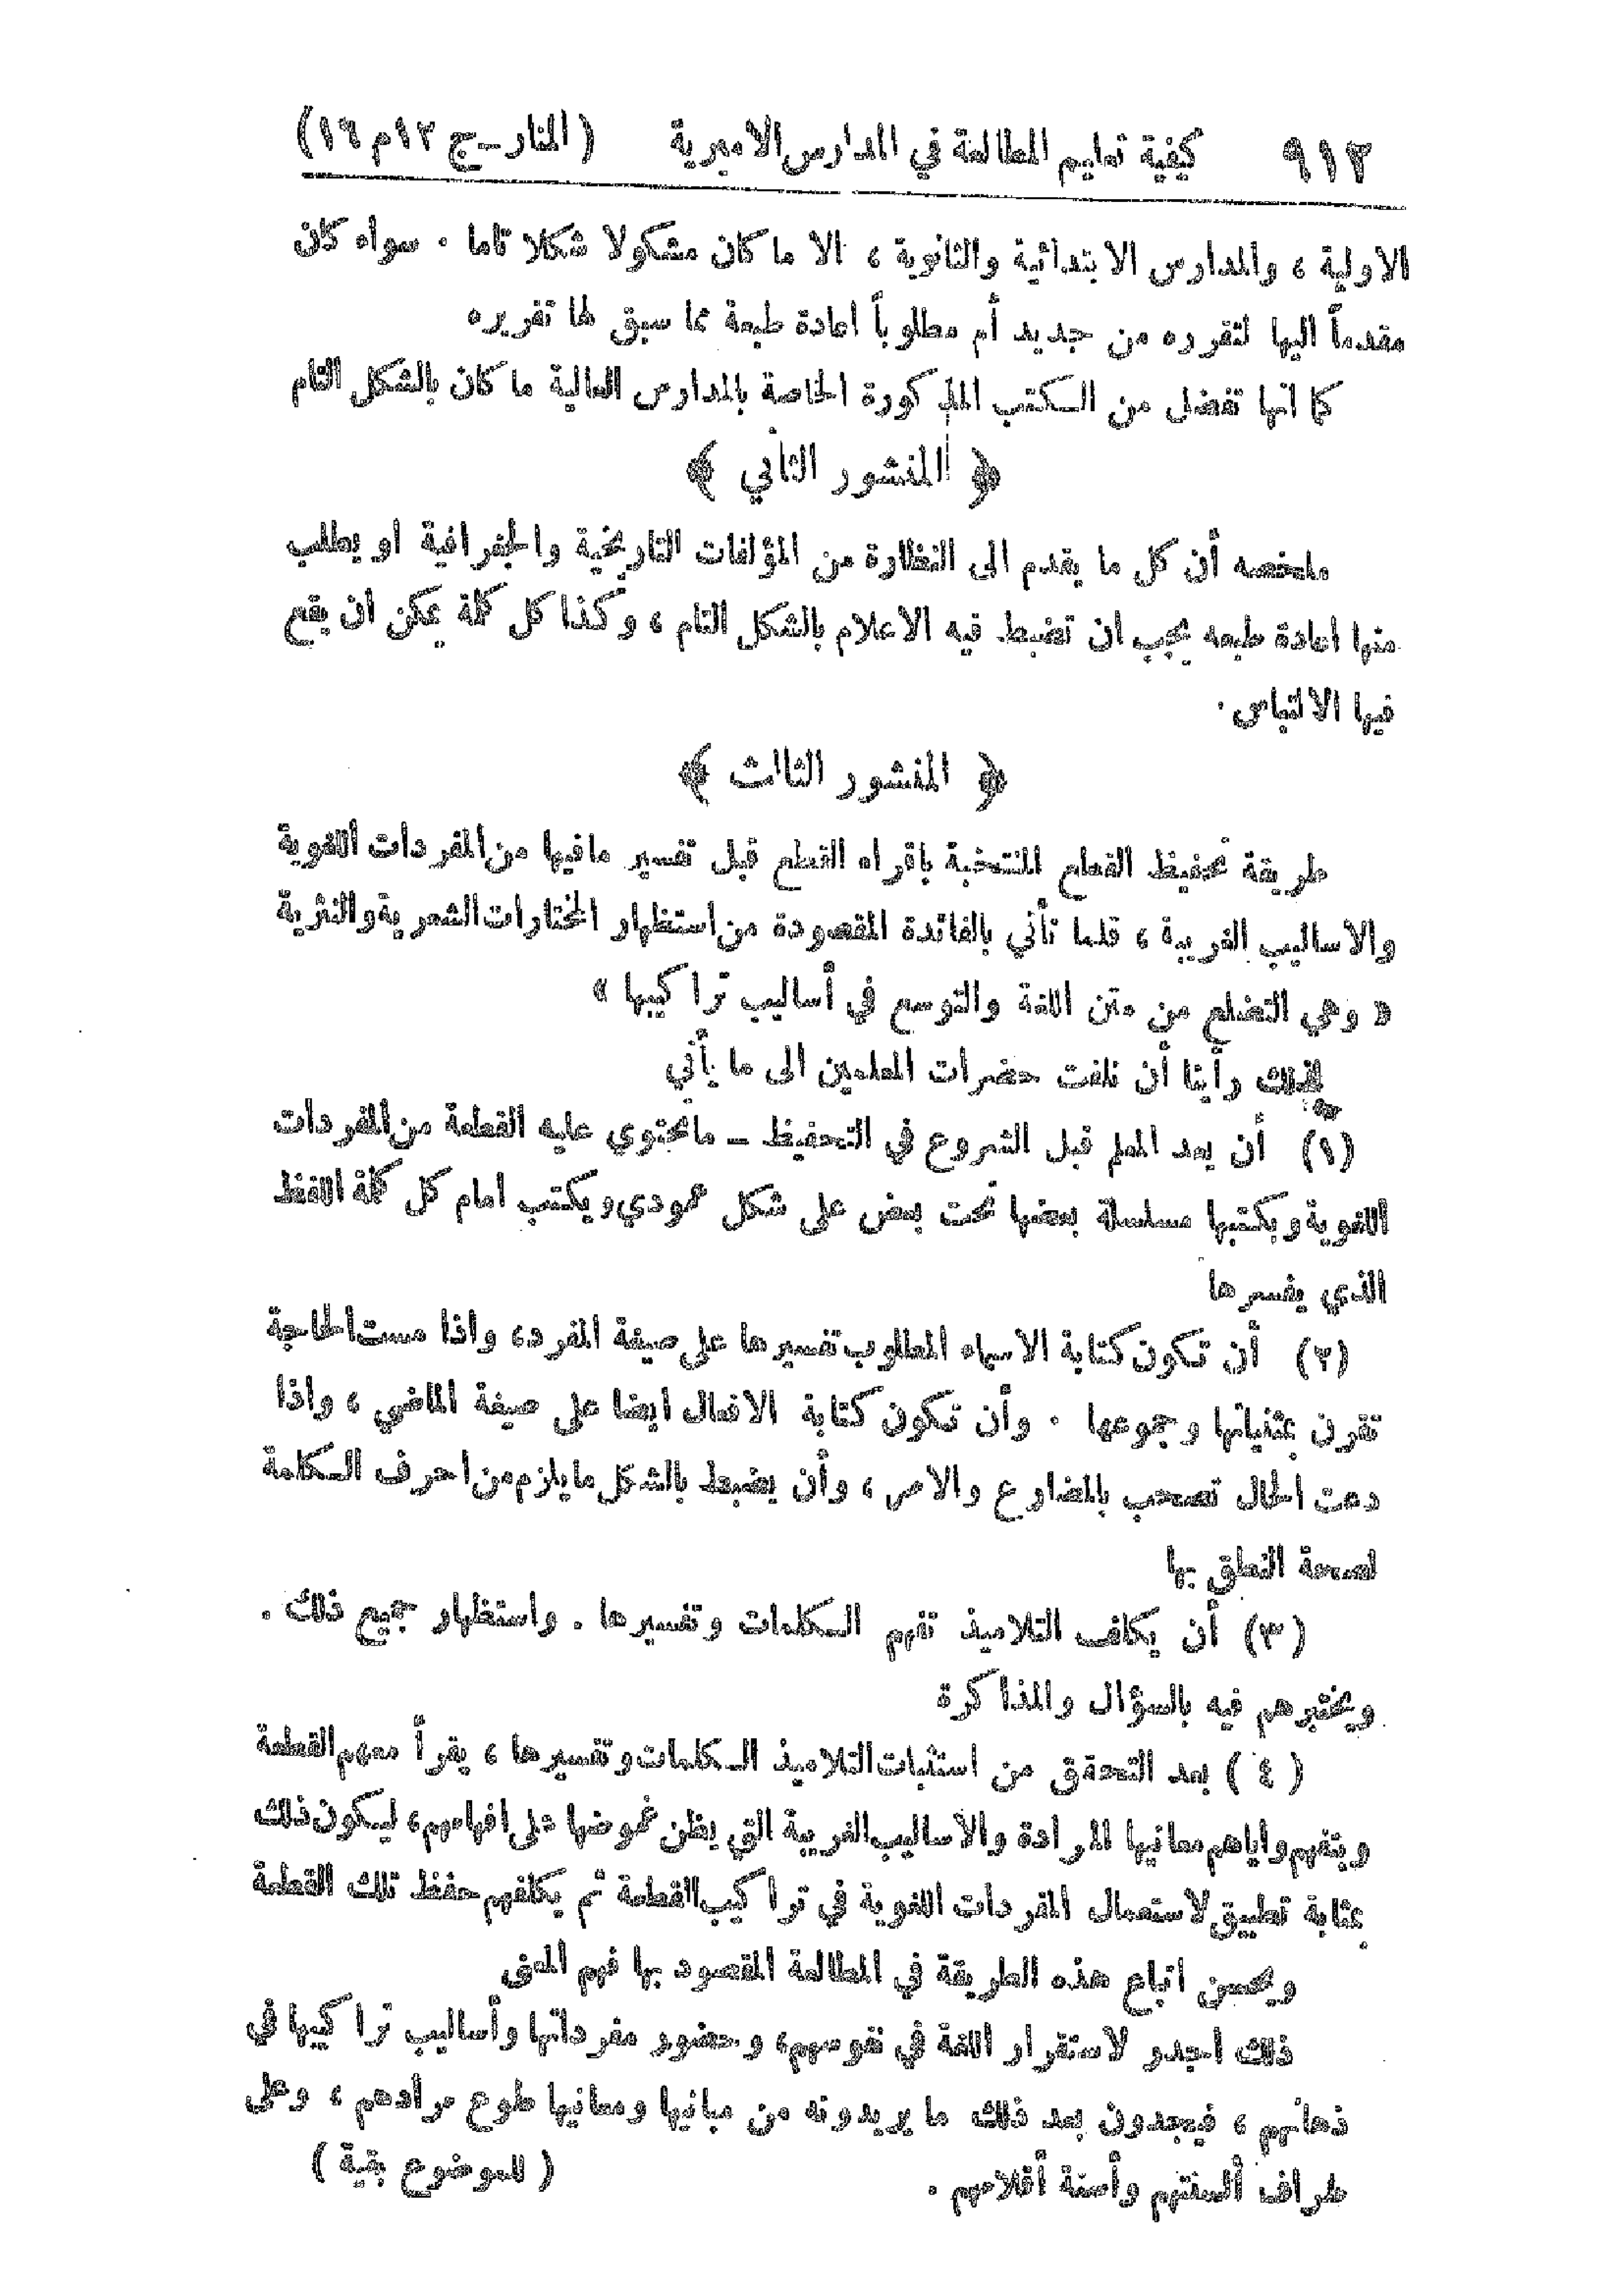 ٩١٢ كيفية تعليم المطالعة في المدارس الاميرية ( المنار ــ ج ١٢ م ١٦)
الاولية ، والمدارس الابتدائية والثانوية ، الا ما كان مشكولا شكلا تاما . سواء كان
مقدماً اليها لتقرره من جديد أم مطلوباً اعادة طبعة مما سبق لها تقريره
كما انها تفضل من الكتب المذكورة الخاصة بالمدارس العالية ما كان بالشكل التام
﴿ المنشور الثاني ﴾
ملخصه أن كل ما يقدم الى النظارة من المؤلفات التاريخية والجغرافية او يطلب
منها اعادة طبعه يجب ان تضبط فيه الاعلام بالشكل التام ، وكذا كل كلمة يمكن ان يقع
فيها الالتباس .
﴿ المنشور الثالث ﴾
طريقة تحفيظ القطع المنتخبة باقراء القطع قبل تفسير مافيها من المفردات اللغوية
والاساليب الغريبة ، قلما تأتي بالفائدة المقصودة من استظهار المختارات الشعرية والنثرية
« وهي التضلع من متن اللغة والتوسع في أساليب تراكيبها »
لذلك رأينا أن نلفت حضرات المعلمين الى ما يأتي
(١) أن يعد المعلم قبل الشروع في التحفيظ ــ ماتحتوي عليه القطعة من المفردات
اللغوية ويكتبها مسلسلة بعضها تحت بعض على شكل عمودي ويكتب امام كل كلمة اللفظ
الذي يفسرها
(٢) أن تكون كتابة الاسماء المطلوب تفسيرها على صيغة المفرد، واذا مست الحاجة
تقرن بمثنياتها وجموعها . وأن تكون كتابة الافعال ايضا على صيغة الماضي ، واذا
دعت الحال تصحب بالمضارع والامر ، وأن يضبط بالشكل مايلزم من احرف الكلمة
لصحة النطق بها
(٣) أن يكلف التلاميذ تفهم الكلمات وتفسيرها . واستظهار جميع ذلك .
ويختبرهم فيه بالسؤال والمذاكرة
( ٤ ) بعد التحقق من استثبات التلاميذ الكلمات وتفسيرها ، يقرأ معهم القطعة
ويتفهم واياهم معانيها المرادة والاساليب الغريبة التي يظن غموضها على افهامهم، ليكون ذلك
بمثابة تطبيق لاستعمال المفردات اللغوية في تراكيب القطعة ثم يكلفهم حفظ تلك القطعة
ويحسن اتباع هذه الطريقة في المطالعة المقصود بها فهم المعنى
ذلك اجدر لاستقرار اللغة في نفوسهم، وحضور مفرداتها وأساليب تراكيبها في
ذهانهم ، فيجدون بعد ذلك ما يريدونه من مبانيها ومعانيها طوع مرادهم ، وعلى
طراف ألسنتهم وأسنة أقلامهم . ( للموضوع بقية )